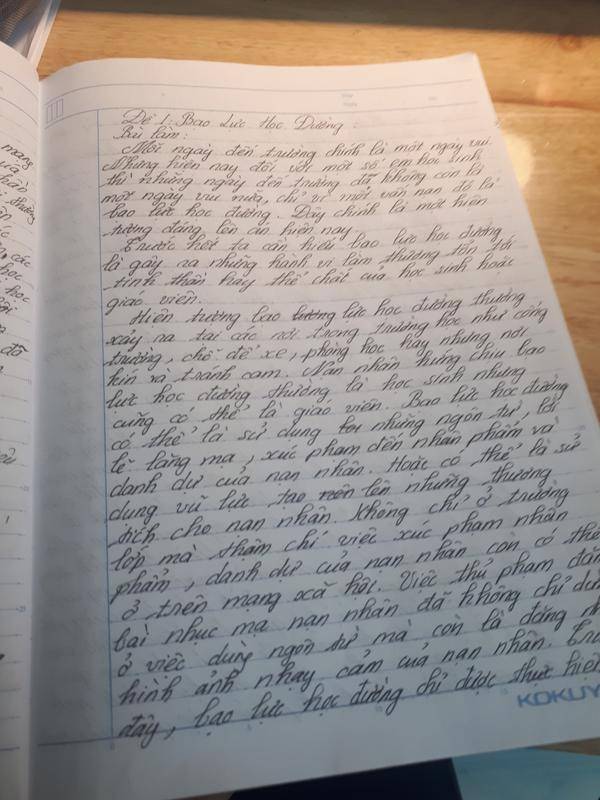 Đề 1: Bạo Lực Học Đường:
Bài làm:
Mỗi ngày đến trường chính là một ngày vui.
Nhưng hiện nay đối với một số em học sinh
thì những ngày đến trường đã không còn là
một ngày vui nữa, chỉ vì một vấn nạn đó là
bạo lực học đường. Đây chính là một hiện
tượng đáng lên án hiện nay.
Trước hết ta cần hiểu bạo lực học đường
là gây ra những hành vi làm thương tổn tới
tinh thần hay thể chất của học sinh hoặc
giáo viên.
Hiện tượng bạo lực học đường thường
xảy ra tại các nơi trong trường học như cổng
trường, chỗ để xe, phòng học hay những nơi
kín và tránh cam. Nạn nhân hứng chịu bạo
lực học đường thường là học sinh nhưng
cũng có thể là giáo viên. Bạo lực học đường
có thể là sử dụng những ngôn từ, lời
lẽ lăng mạ, xúc phạm đến nhân phẩm và
danh dự của nạn nhân. Hoặc có thể là sử
dụng vũ lực tạo lên những thương
tích cho nạn nhân. Không chỉ ở trường
lớp mà thậm chí việc xúc phạm nhân
phẩm, danh dự của nạn nhân còn có thể
ở trên mạng xã hội. Việc thủ phạm đăng
bài nhục mạ nạn nhân đã không chỉ
ở việc dùng ngôn từ mà còn là đăng
hình ảnh nhạy cảm của nạn nhân.
đây, bạo lực học đường chỉ được thực hiện